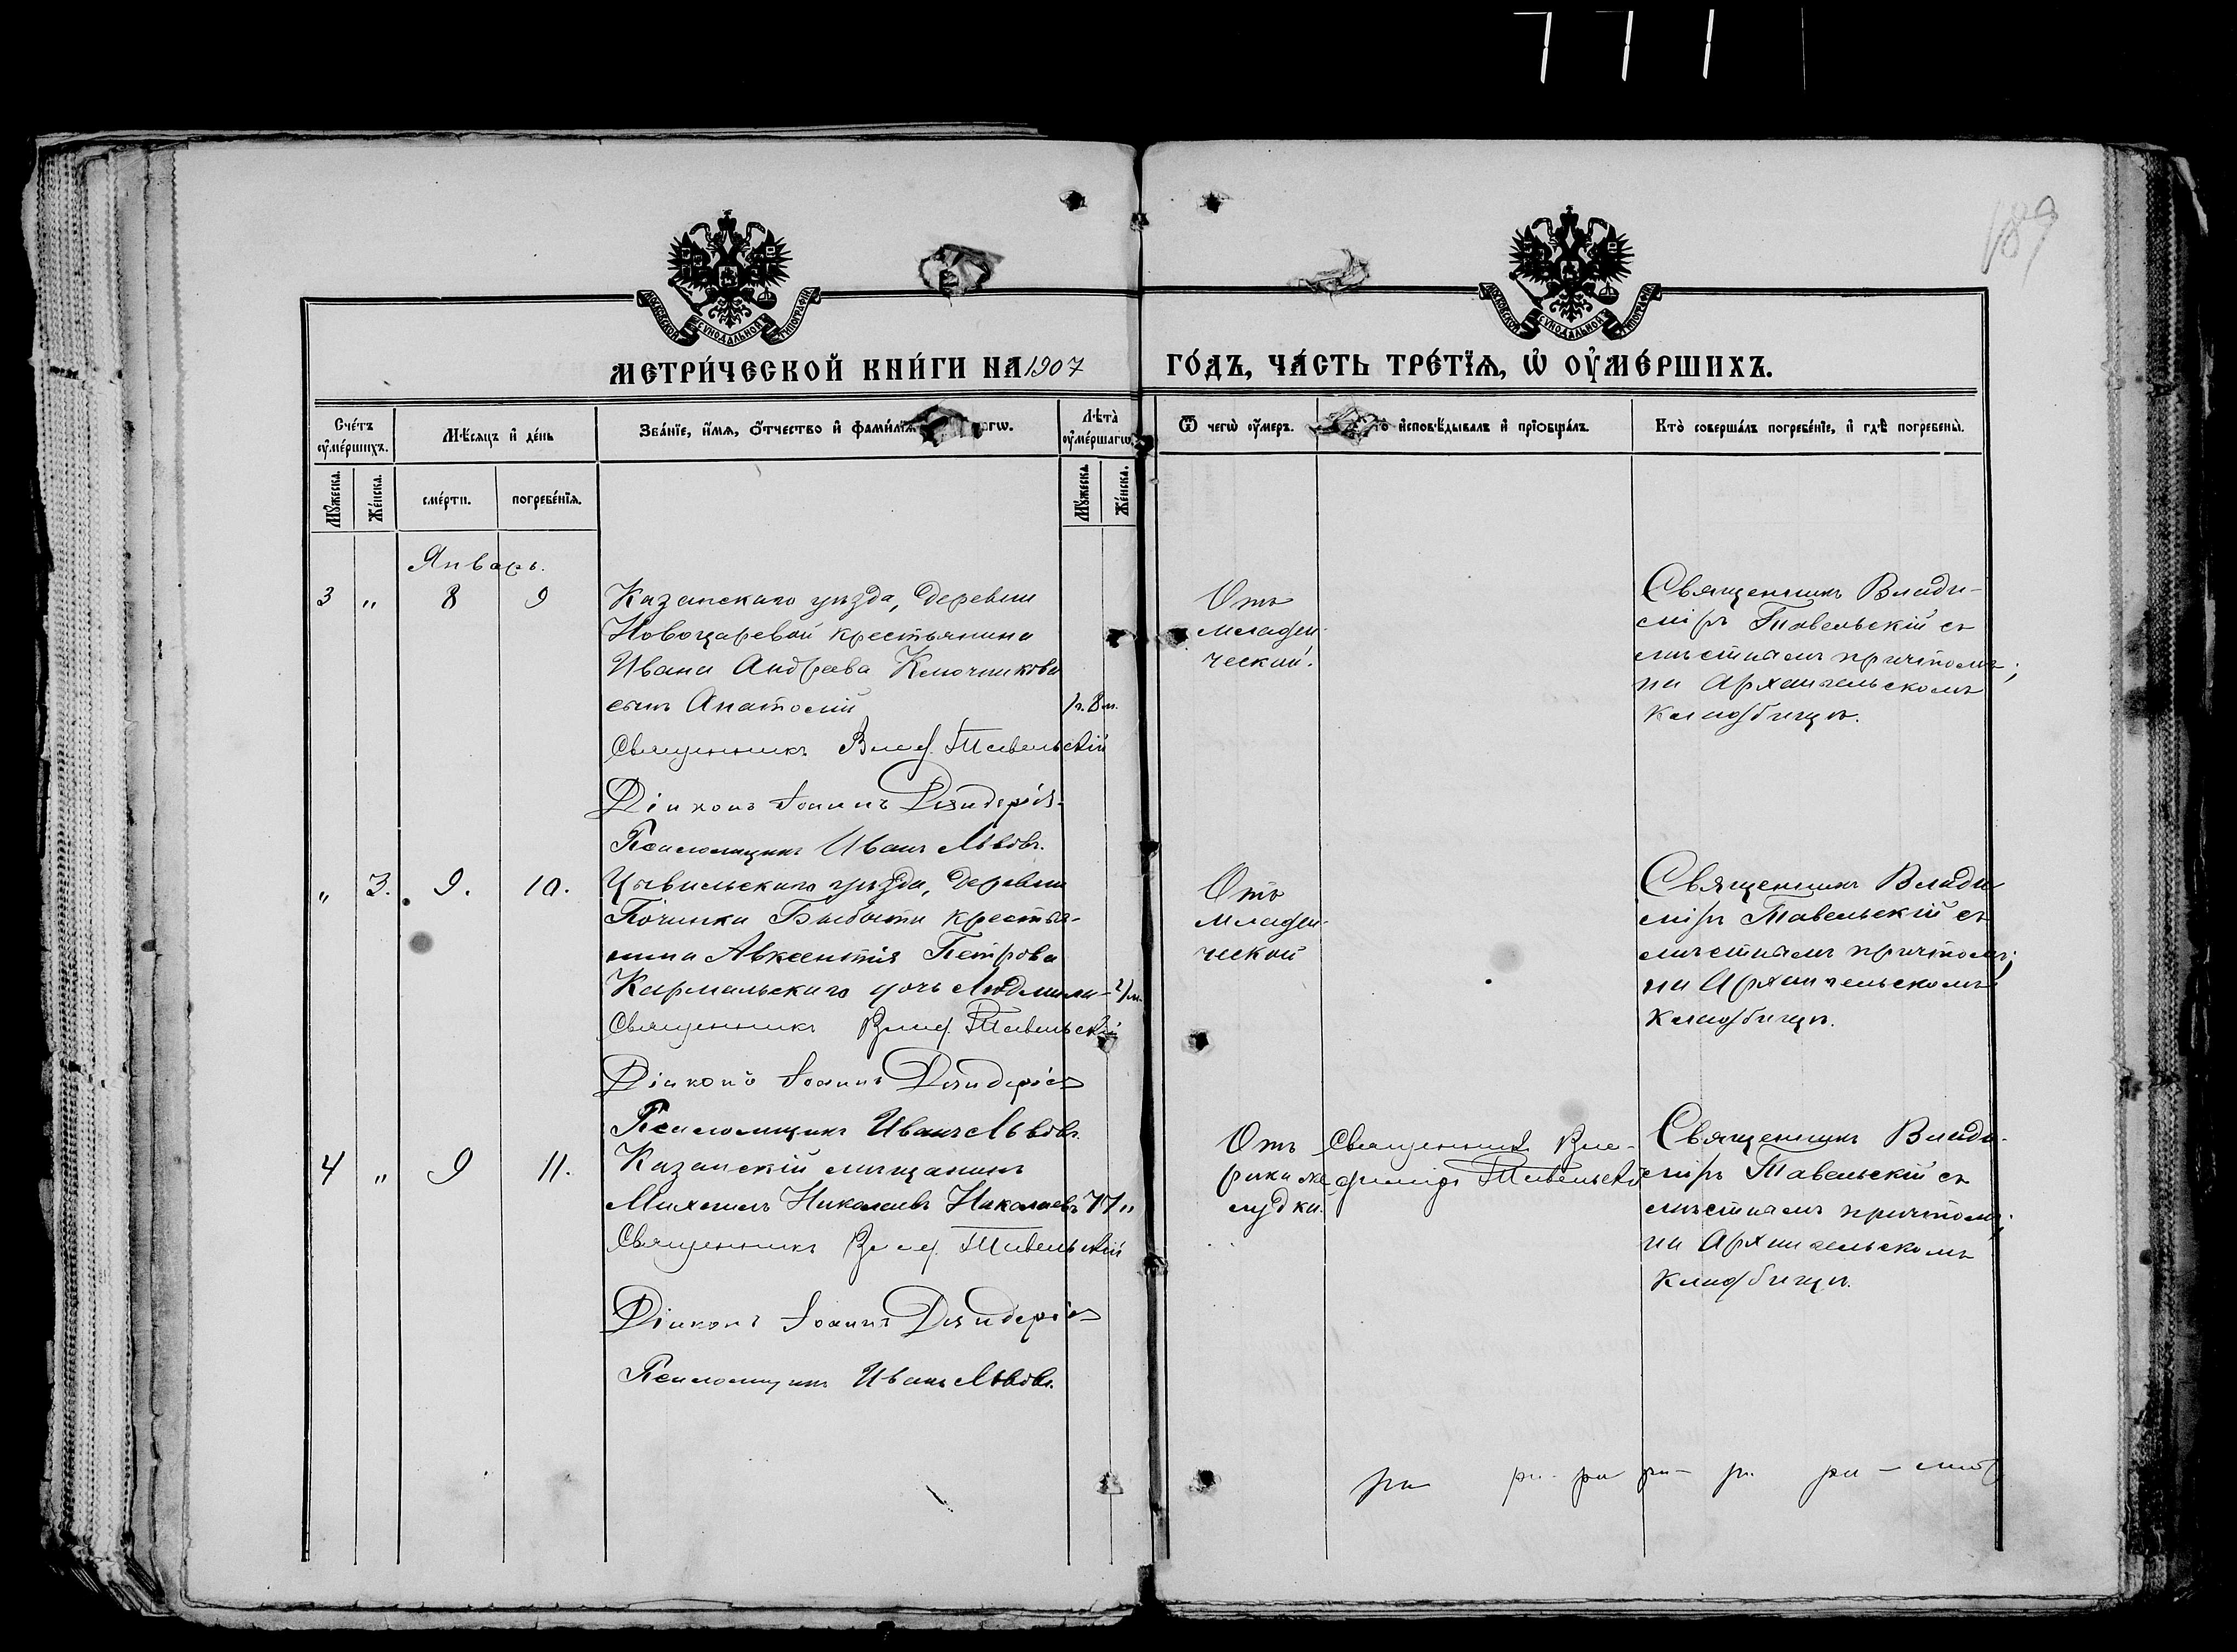 771
189
МОСКОВСКОЙ СѴНОДАЛЬНОЙ ТИПОГРАФІИ
МОСКОВСКОЙ СѴНОДАЛЬНОЙ ТИПОГРАФІИ
МЕТРИ́ЧЕСКОЙ КНИ́ГИ НА 1907 ГО́ДЪ, ЧА́СТЬ ТРЕ́ТЇѦ, Ѡ҆ ОУ҆МЕ́РШИХЪ.
Сче́тъ оу҆ме́ршихъ.
Мѣ́сѧцъ и҆ де́нь
Зва́нїе, и҆́мѧ, ѻ҆́тчество и҆ фами́лїѧ
Лѣ̀та оу҆ме́ршагѡ.
Ѿ чегѡ̀ оу҆́меръ.
и҆сповѣ́дывалъ и҆ прїѡбща́лъ.
Кто̀ соверша́лъ погребе́нїе, и҆ гдѣ̀ погребены̀.
Мꙋ́жеска.
Же́нска.
сме́рти.
погребе́нїѧ.
Мꙋ́жеска.
Же́нска.
Январь.
3 " 8 9
Казанскаго уѣзда, деревни
Новоцаревой крестьянина
Ивана Андреева Ключникова
сынъ Анатолій
1 г. 8 м.
Священникъ Влад. Тавельскій
Діаконъ Іоаннъ
Псаломщикъ Иванъ Львовъ.
Отъ
младен-
ческой.
Священникъ Влади-
міръ Тавельскій съ
мѣстнымъ причтомъ;
на Архангельскомъ
кладбищѣ.
" 3. 9. 10.
Цивильскаго уѣзда, деревни
Починка Быбыти крестья-
нина Авксентія Петрова
Кармальскаго дочь Людмила
Священникъ Влад. Тавельскій
Діаконъ Іоаннъ
Псаломщикъ Иванъ Львовъ.
Отъ
младен-
ческой
Священникъ Влади
міръ Тавельскій съ
мѣстнымъ причтомъ;
на Архангельскомъ
кладбищѣ.
4 " 9 11.
Казанскій мѣщанинъ
Михаилъ Николаевъ Николаевъ 77 "
Священникъ Влад. Тавельскій
Діаконъ Іоаннъ
Псаломщикъ Иванъ Львовъ.
Отъ
рака же
лудка.
Священникъ Вла-
димиръ Тавельскій
Священникъ Влади-
міръ Тавельскій съ
мѣстнымъ причтомъ;
на Архангельскомъ
кладбищѣ.